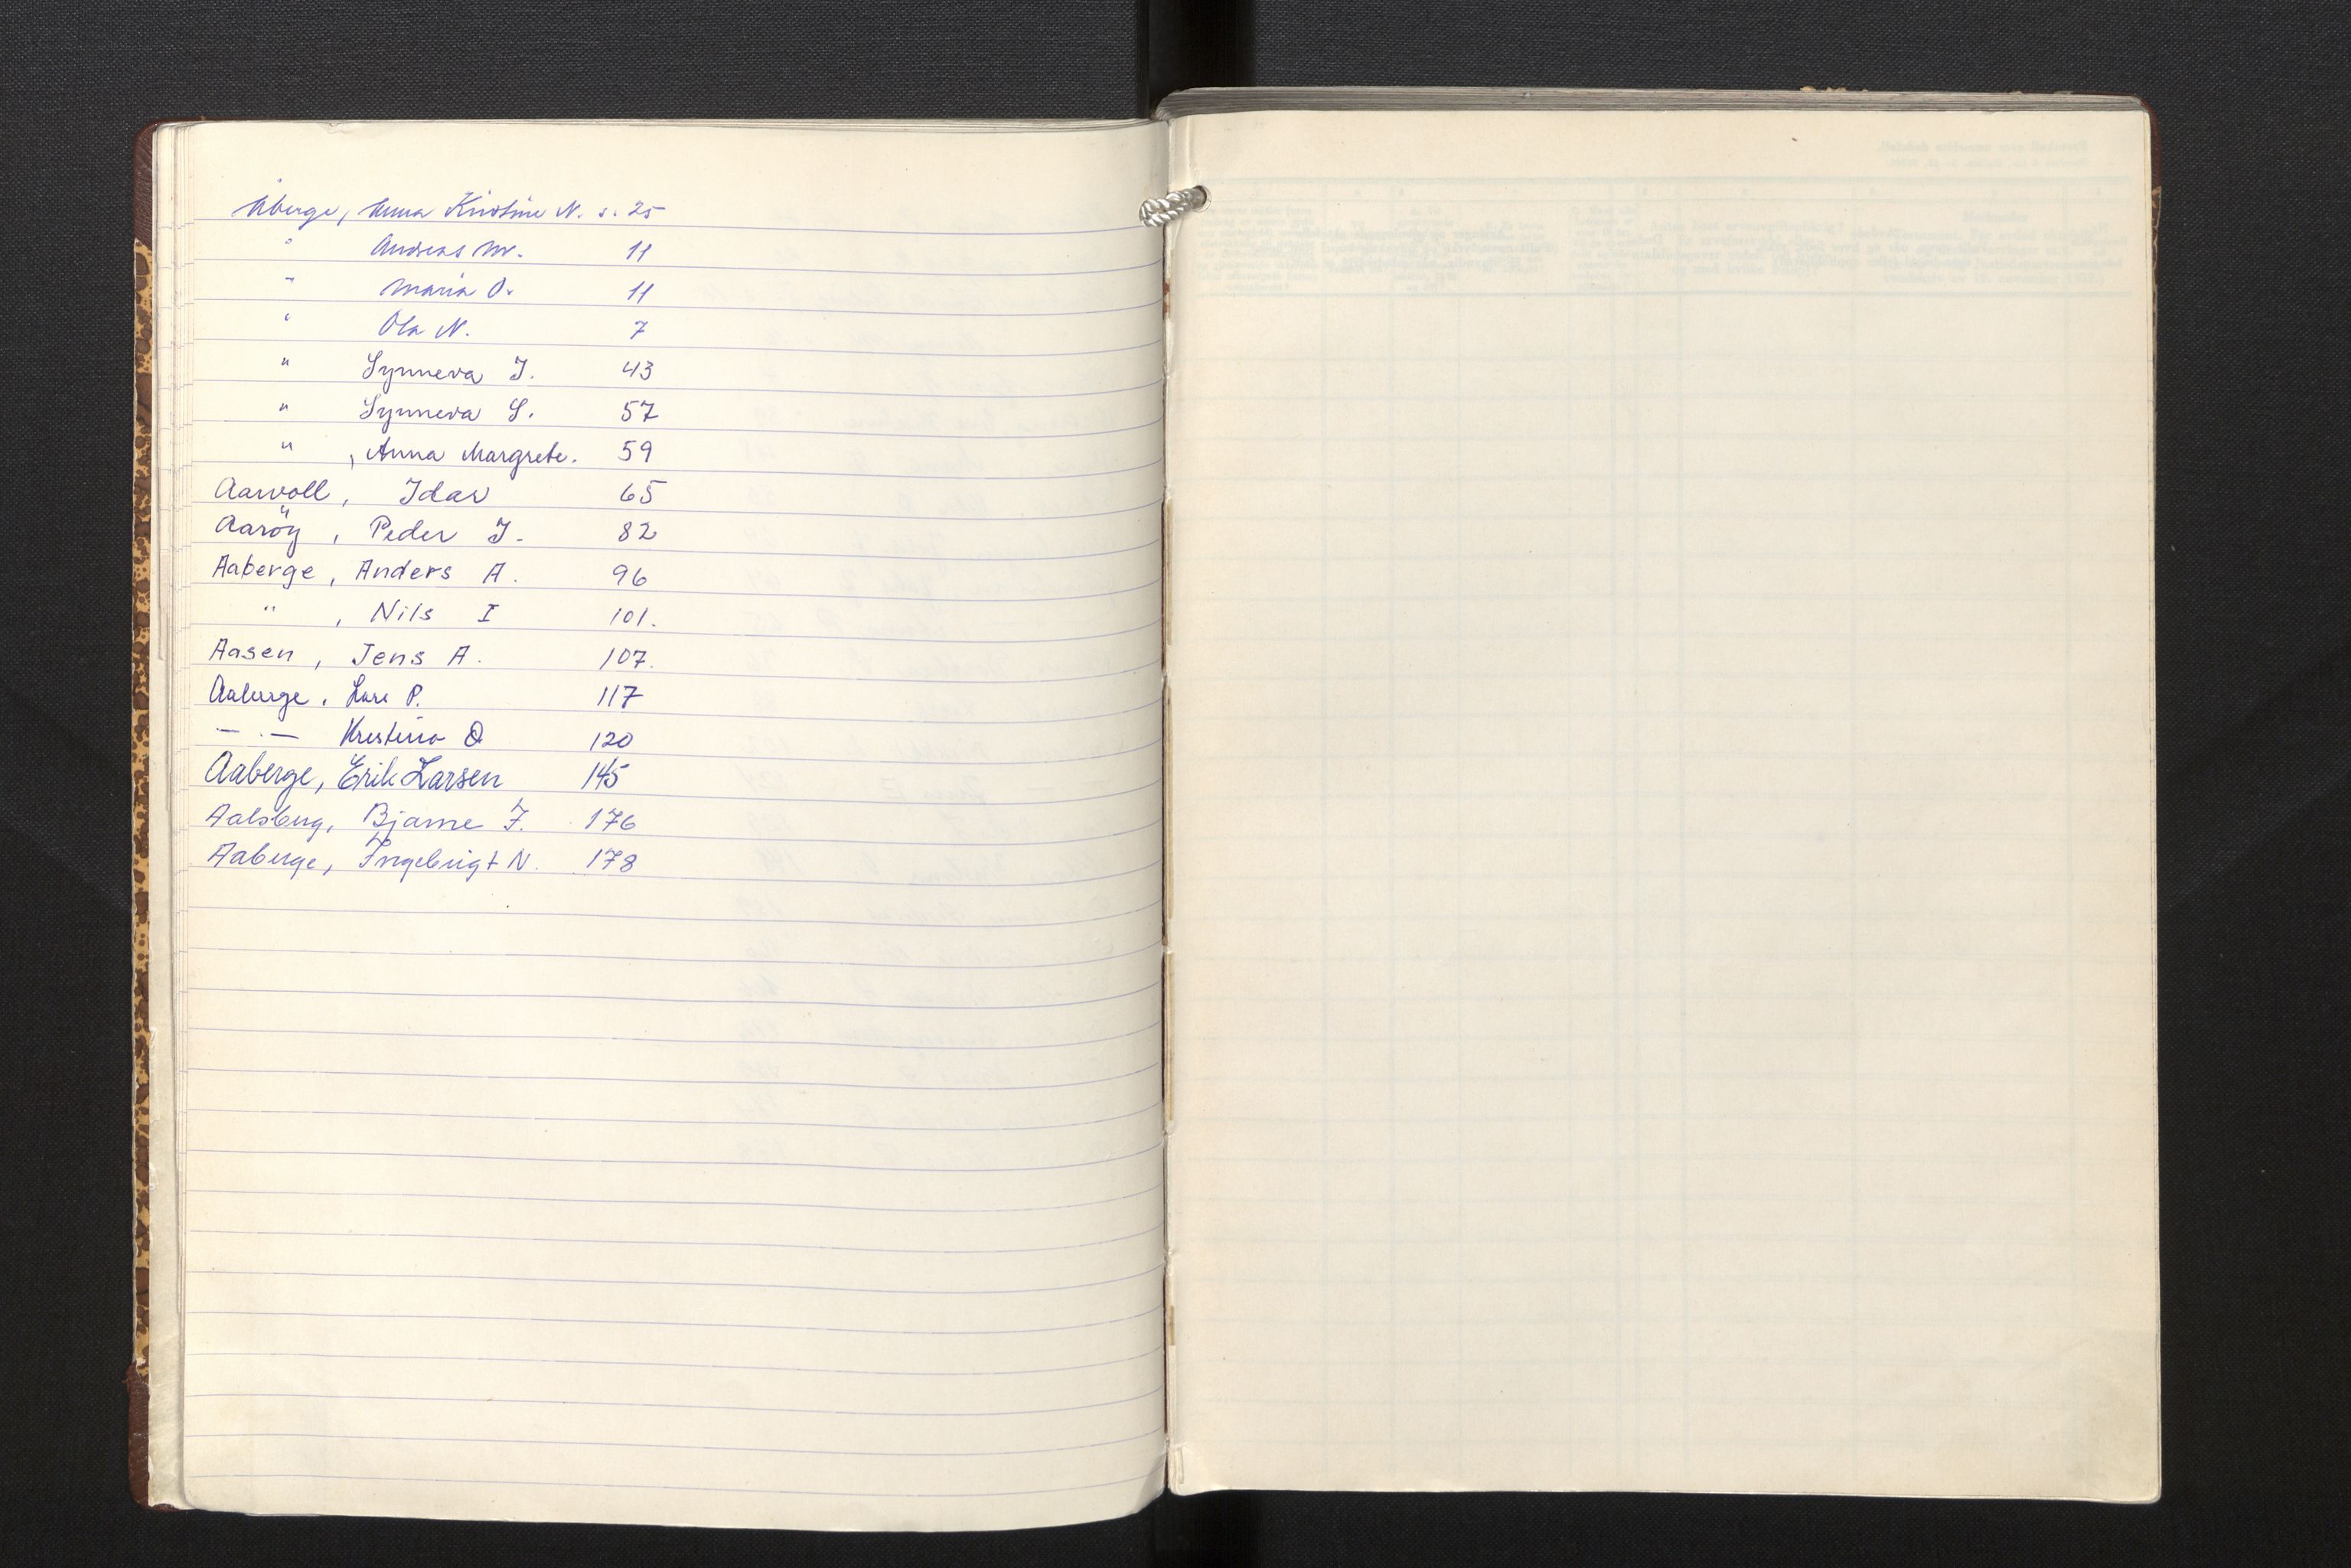 Åberge, Anna Kristine N. s. 25
" Andreas M. 11
" Maria O. 11
" Ola N. 7
" Synneva J. 43
" Synneva S. 57
" , Anna Margrete. 59
Aarvoll, Idar 65
Aaröy, Peder J. 82
Aaberge, Anders A. 96
" , Nils I 101.
Aasen, Jens A. 107.
Aaberge, Lars P. 117
— . — Kristina O 120
Aaberge, Erik Larsen 145
Aalsberg, Bjarne J. 176
Aaberge, Ingebrigt N. 178